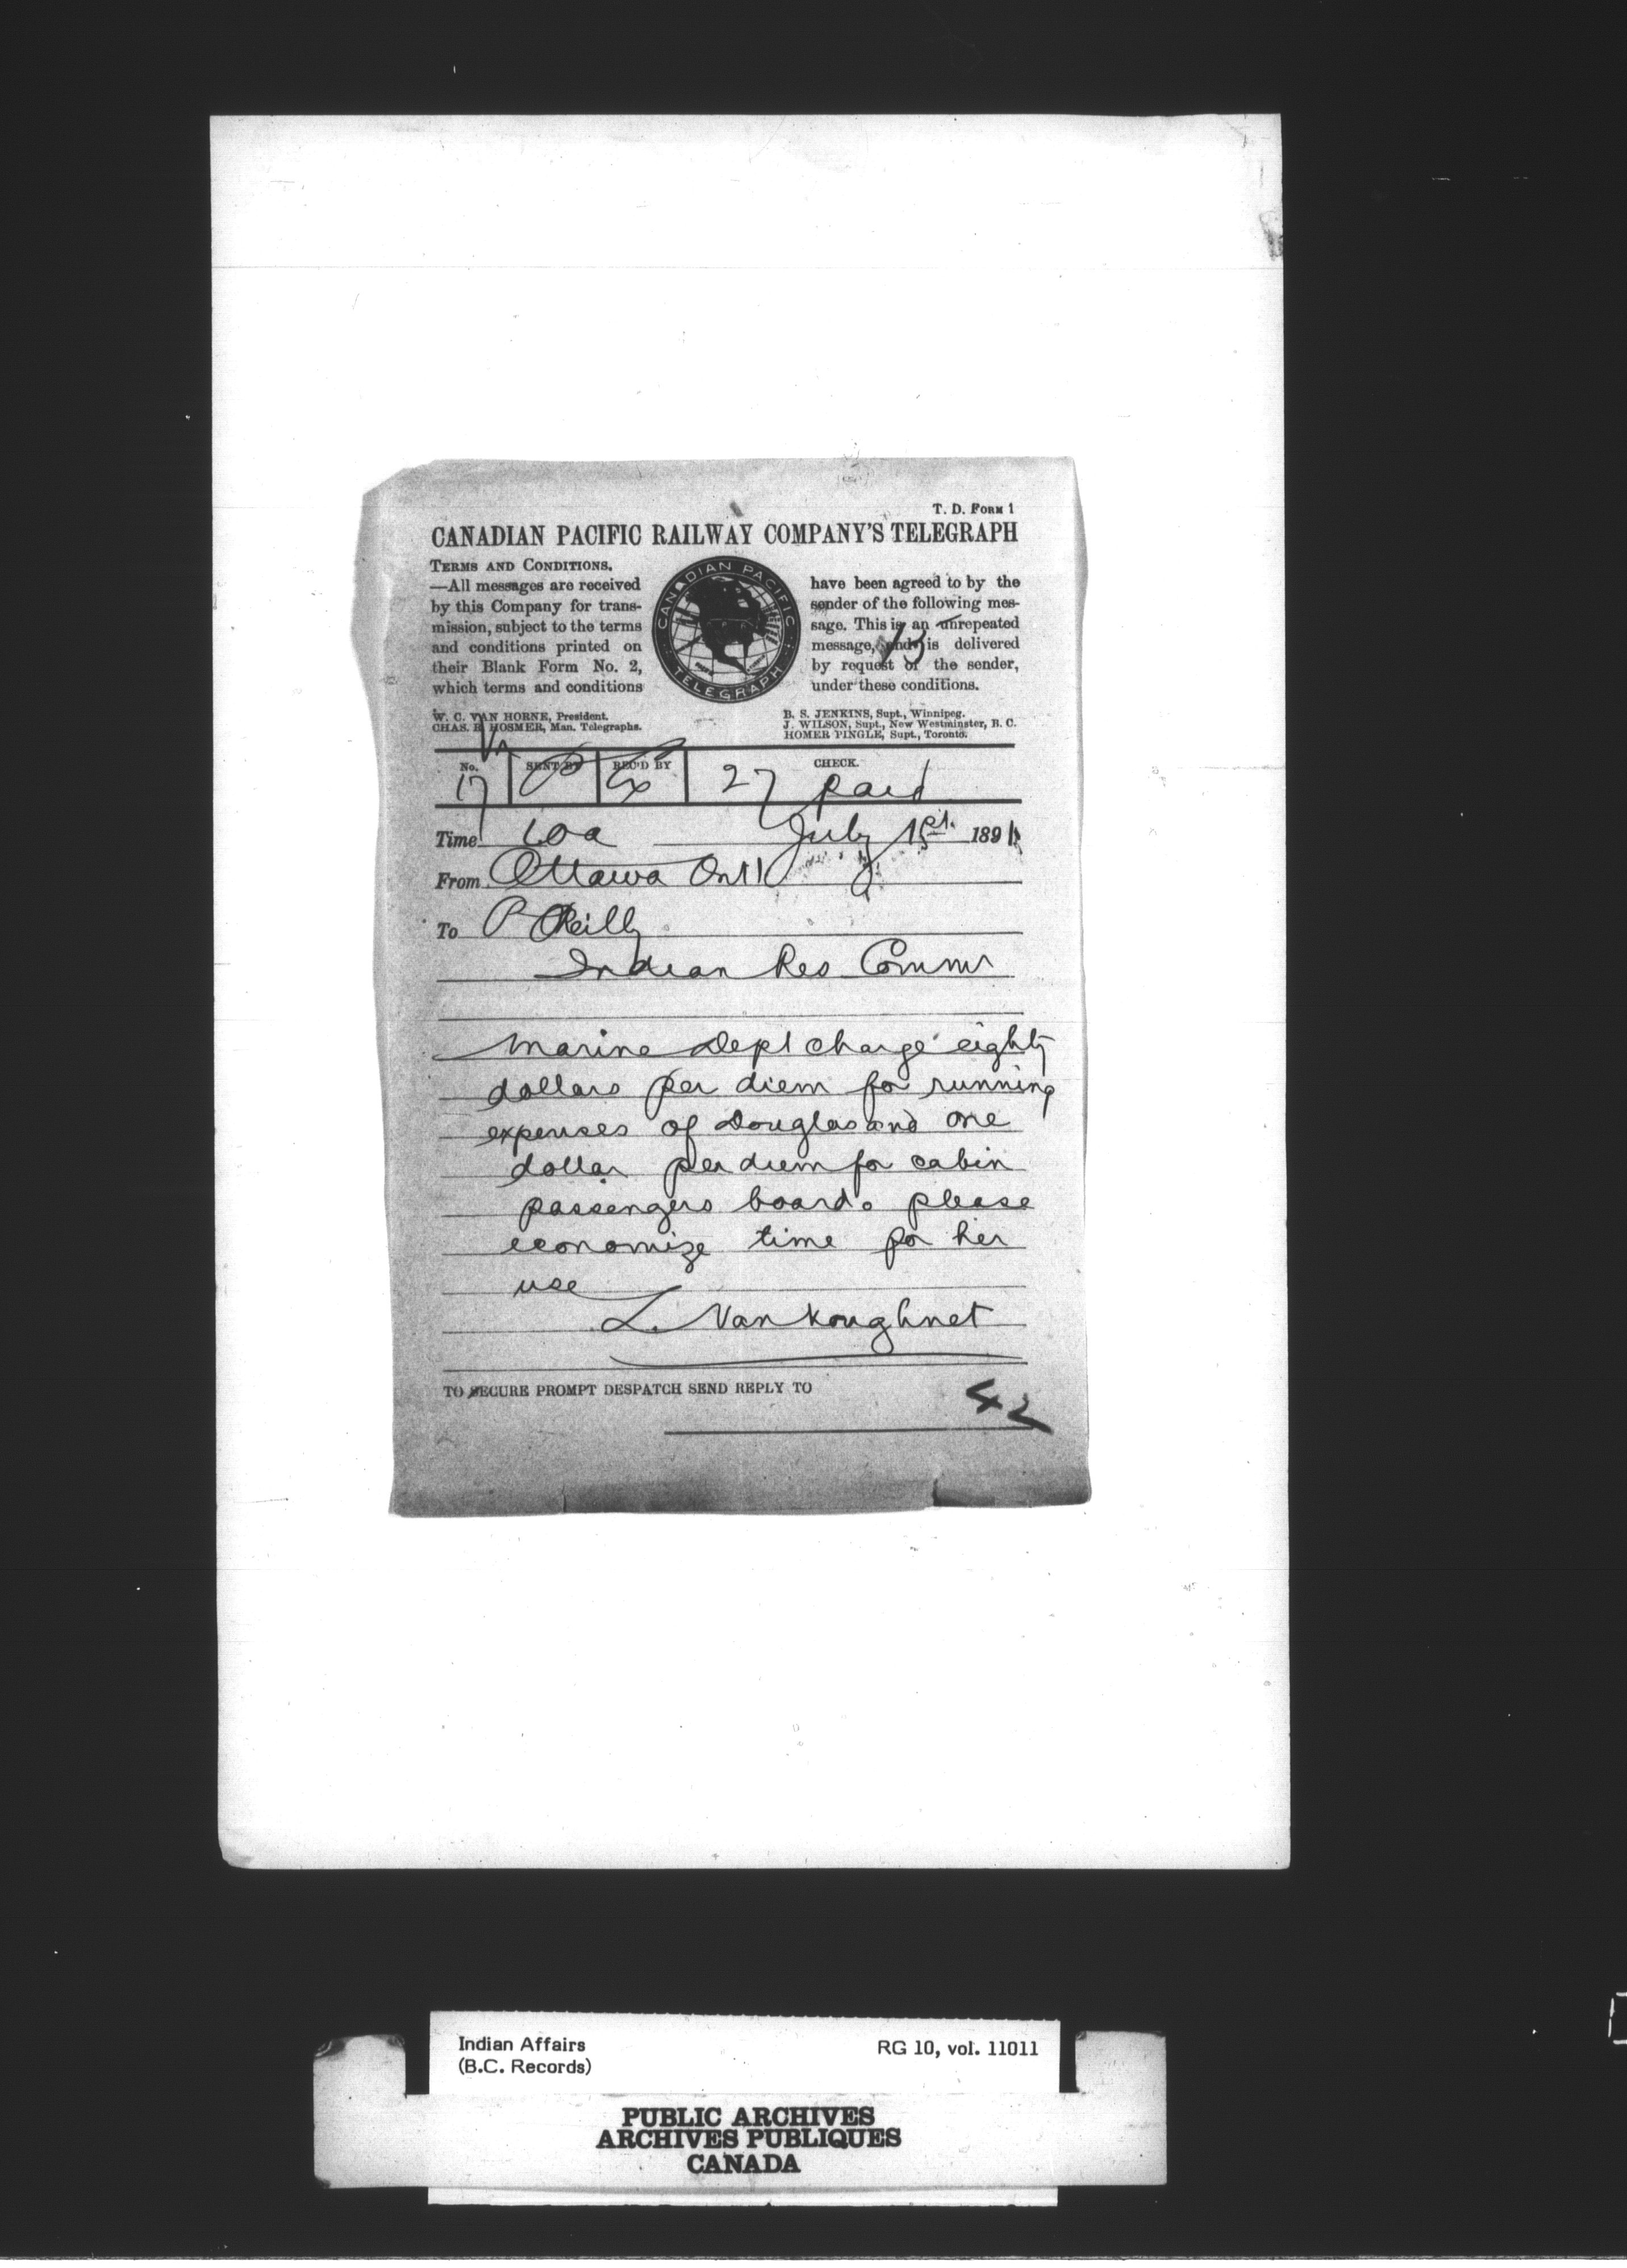 T. D. FORM 1
CANADIAN PACIFIC RAILWAY COMPANY'S TELEGRAPH
TERMS AND CONDITIONS.
—All messages are received
by this Company for trans-
mission, subject to the terms
and conditions printed on
their Blank Form No. 2,
which terms and conditions
CANADIAN PACIFIC
TELEGRAPH
have been agreed to by the
sender of the following mes-
sage. This is an unrepeated
message, and is delivered
by request of the sender,
under these conditions.
13
W. C. VAN HORNE, President.
CHAS. R. HOSMER, Man. Telegraphs.
B. S. JENKINS, Supt., Winnipeg.
J. WILSON, Supt., New Westminster, B. C.
HOMER PINGLE, Supt., Toronto.
No. SENT BY REC'D BY CHECK.
17 27 paid
Time 10a July 1st. 1891
From Ottawa Ont
To P OReilly
Indian Res Commr
Marine Dept charge eighty
dollars per diem for running
expenses of Douglas and one
dollar per diem for cabin
passengers board. please
economize time for her
use
L. VanKoughnet
TO SECURE PROMPT DESPATCH SEND REPLY TO
42
Indian Affairs
(B.C. Records)
RG 10, vol. 11011
PUBLIC ARCHIVES
ARCHIVES PUBLIQUES
CANADA